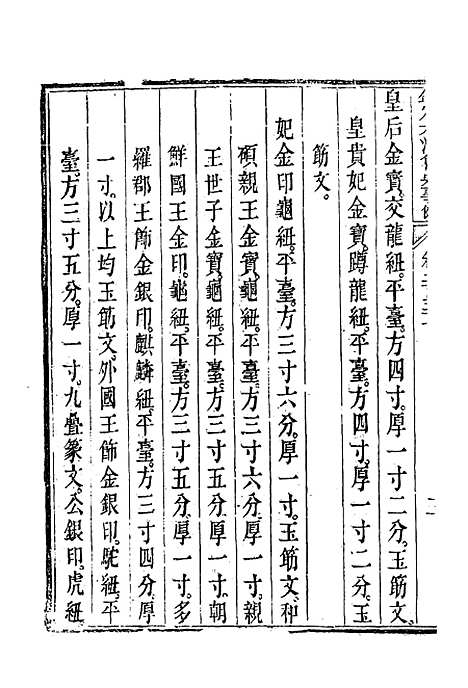 皇后金寶。交龍紐。平臺。方四寸。厚一寸二分。玉筯文。
皇貴妃金寶。蹲龍紐。平臺。方四寸。厚一寸二分。玉
筯文。
妃金印龜紐。平臺。方三寸六分。厚一寸。玉筯文。和
碩親王金寶。龜紐。平臺。方三寸六分。厚一寸。親
王世子金寶。龜紐。平臺。方三寸五分。厚一寸。朝
鮮國王金印。龜紐。平臺。方三寸五分。厚一寸。多
羅郡王飾金銀印。麒麟紐。平臺。方三寸四分。厚
一寸。以上均玉筯文。外國王飾金銀印。駝紐。平
臺。方三寸五分。厚一寸。九疊篆文。公銀印。虎紐。